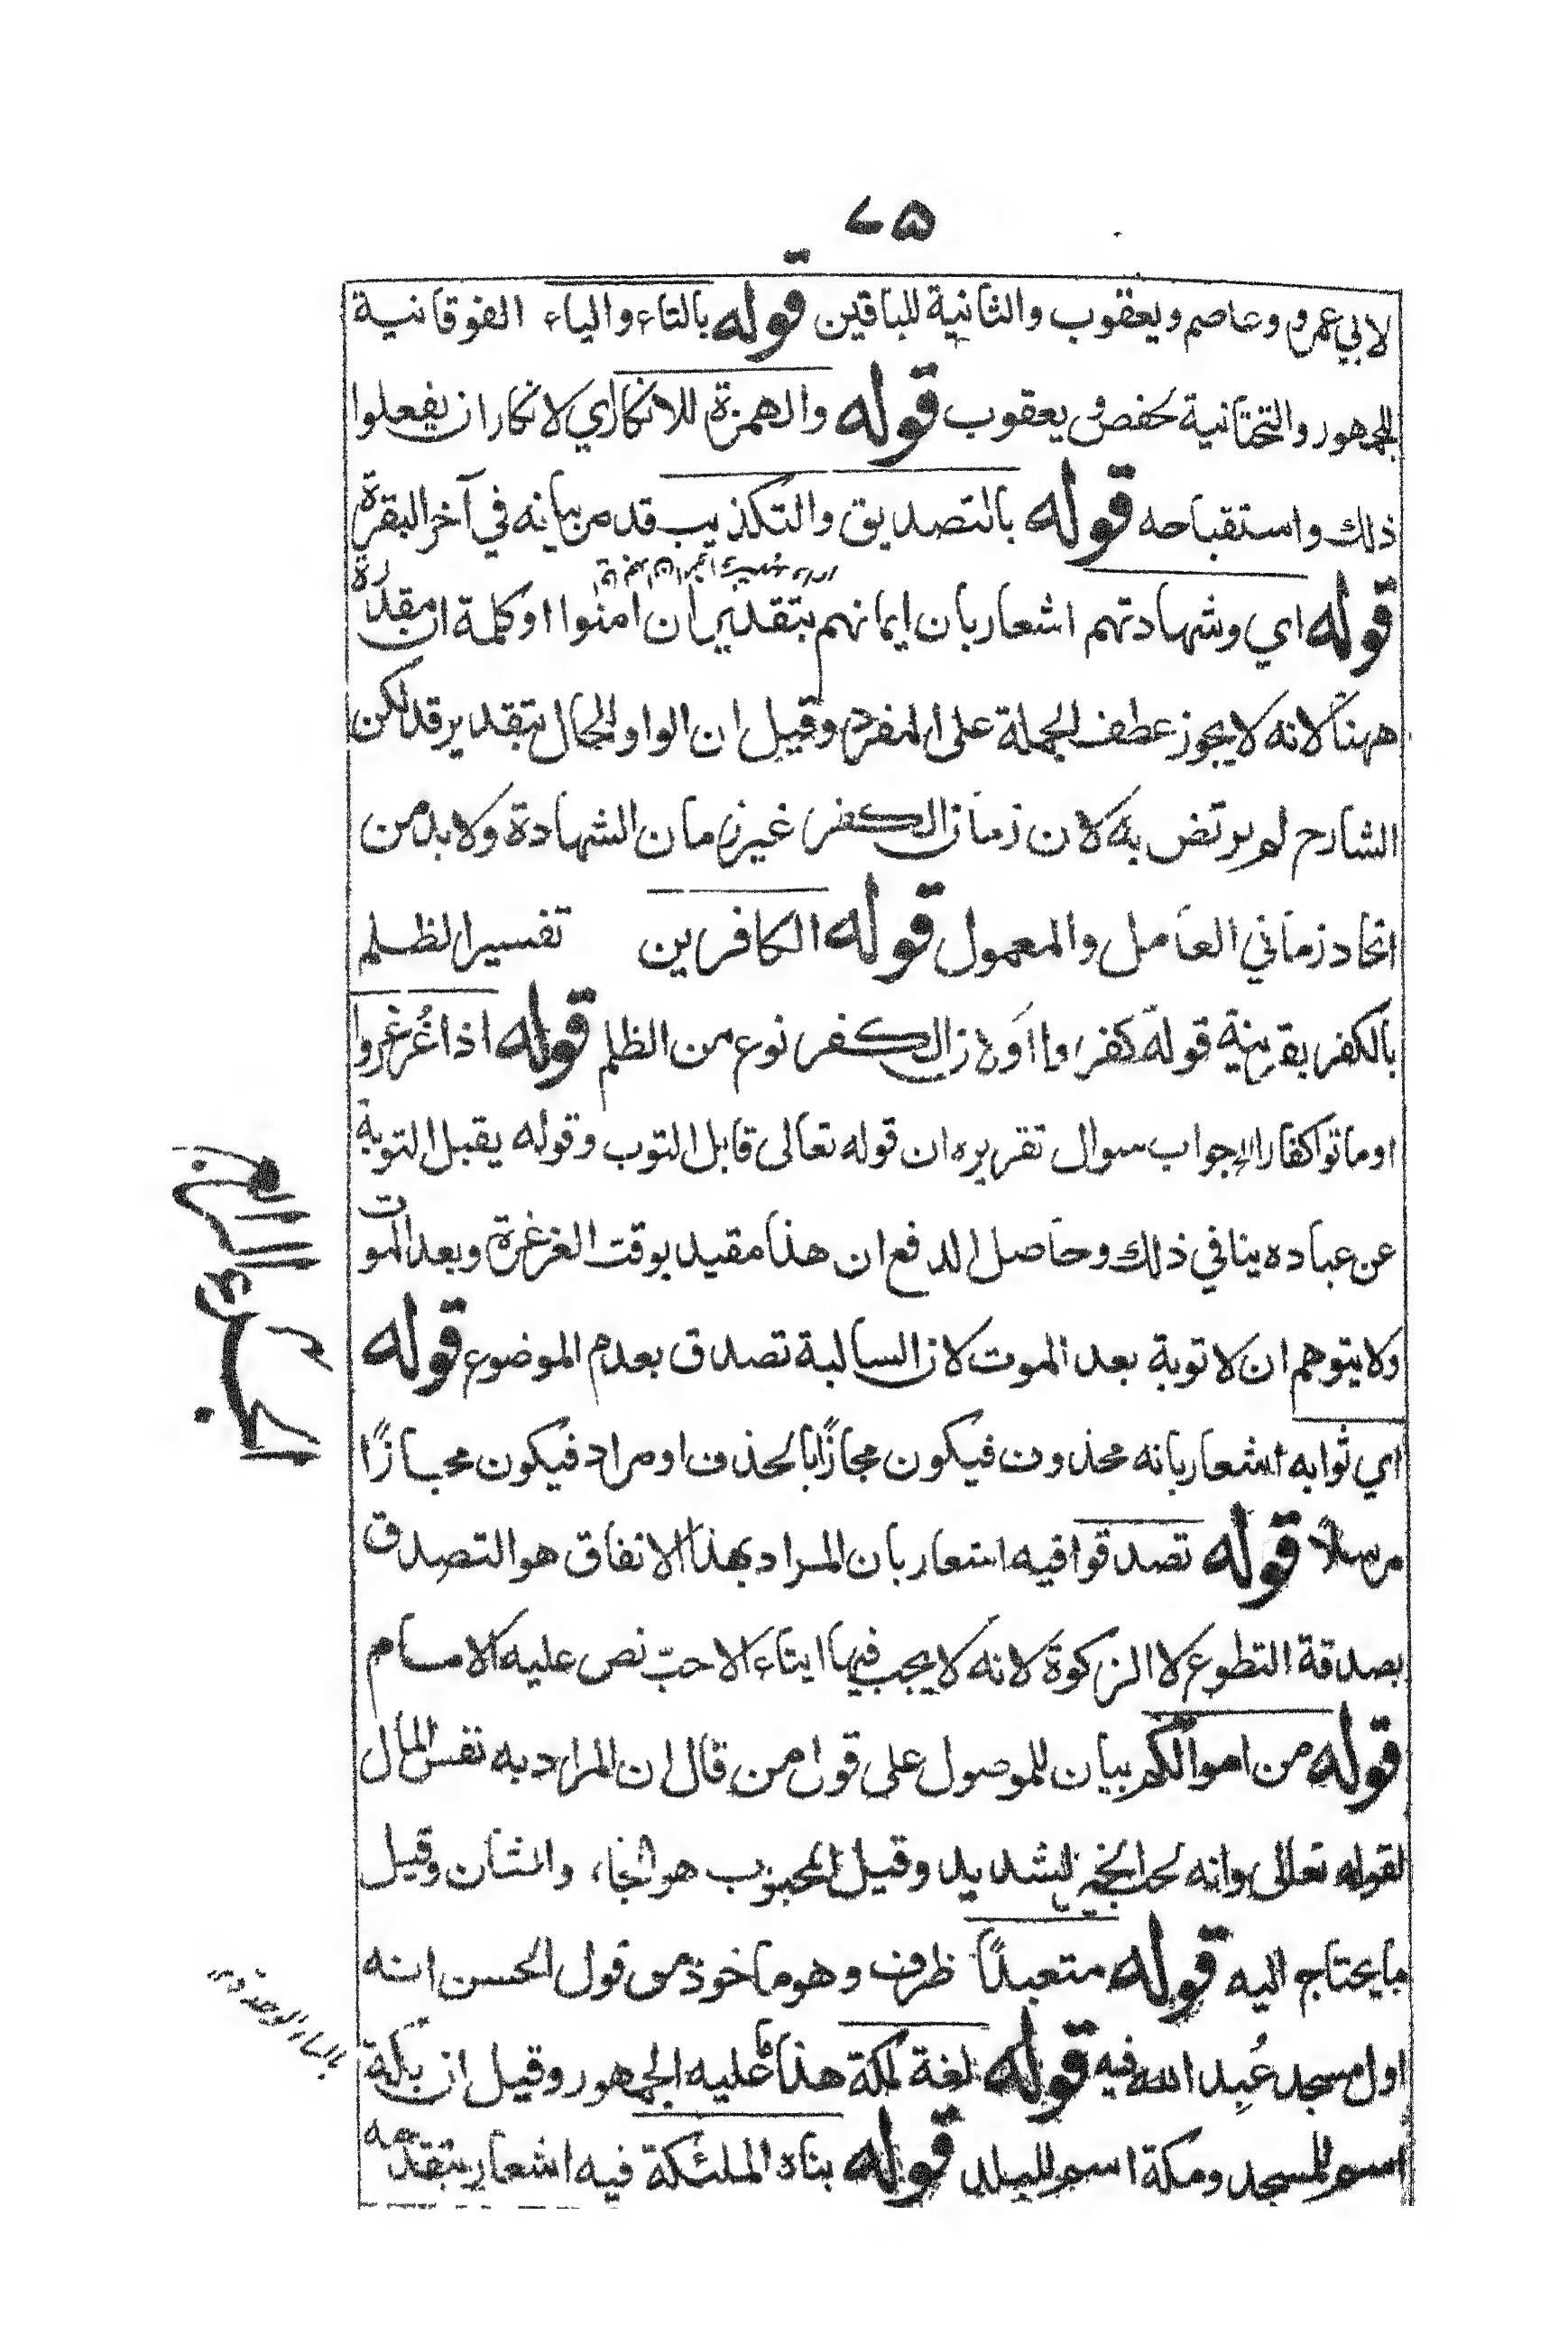 ٧٥
لابي عمرو وعاصم ويعقوب والثانية للباقين قوله بالتاء والياء الفوقانية
للجمهور والتحتانية لحفص ويعقوب قوله والهمزة للانكار اي لانكار ان يفعلوا
ذلك واستقباحه قوله بالتصديق والتكذيب قد مر بيانه في آخر البقرة
قوله اي وشهادتهم اشعار بان ايمانهم بتقدير ان امنوا او كلمة ان مقدرة
ههنا لانه لا يجوز عطف الجملة على المفرد وقيل ان الواو للحال بتقدير قد لكن
الشارح لم يرتض به لان زمان الكفر غير زمان الشهادة ولا بد من
اتحاد زماني العامل والمعمول قوله الكافرين تفسير الظلم
بالكفر بقرينة قوله كفروا او لان الكفر نوع من الظلم قوله اذا غرغروا
او ماتوا كفارا الخ جواب سوال تقريره ان قوله تعالى قابل التوب وقوله يقبل التوبة
عن عباده ينافي ذلك وحاصل الدفع ان هذا مقيد بوقت الغرغرة وبعد الموت
ولا يتوهم ان لا توبة بعد الموت لان السالبة تصدق بعدم الموضوع قوله
اي ثوابه اشعار بانه محذوف فيكون مجازًا بالحذف او مراد فيكون مجازًا
مرسلا قوله تصدقوا فيه اشعار بان المراد بهذا الانفاق هو التصدق
بصدقة التطوع لا الزكوة لانه لا يجب فيها ايتاء الاحبّ نص عليه الامام
قوله من اموالكم بيان للموصول على قول من قال ان المراد به نفس المال
لقوله تعالى وانه لحب الخير لشديد وقيل المحبوب هو الجاه والشان وقيل
ما يحتاج اليه قوله متعبدًا ظرف وهو ماخوذ من قول الحسن انه
اول مسجد عُبِد الله فيه قوله لغة لمكة هذا ما عليه الجمهور وقيل ان بكة
اسم للمسجد ومكة اسم للبلد قوله بناه الملئكة فيه اشعار بتقدمه
الجزء الرابع